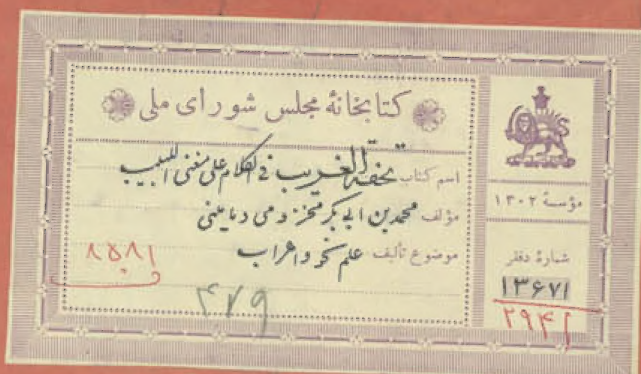 کتابخانهٔ مجلس شورای ملی
اسم کتاب تحفة الغریب فی الکلام علی مغنی اللبیب
مؤلف محمد بن ابی بکر مخزومی دمامینی
موضوع تألیف علم نحو و اعراب
۸۵۸۱
ف
۴۷۹
مؤسسهٔ ۱۳۰۲
شمارهٔ دفتر
۱۳۶۷۱
۲۹۴۱